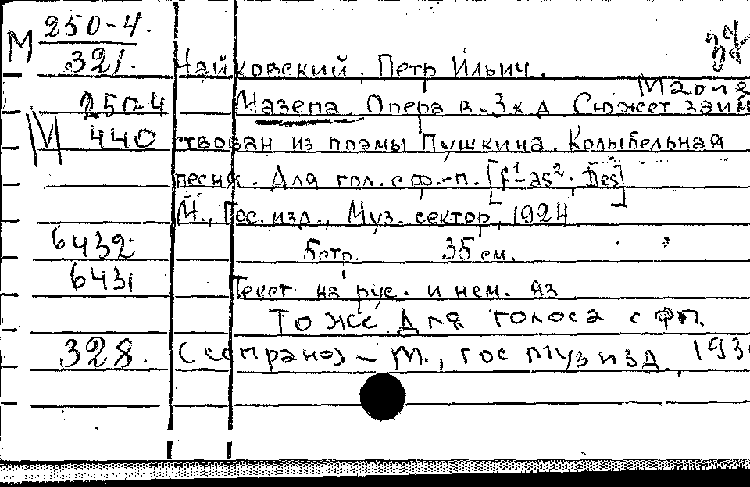 М 250-4. 37
321. Чайковский, Петр Ильич.
250-4 Мазепа. Опера в-3х д. Сюжет заим
М 440 твован из поэмы Пушкина. Колыбельная
песня. Для гол. с ф.-п. [f¹-as². Des]
М., Гос. изд., Муз. сектор, 1924
6432 5 стр. 35 см.
6431 Текст на рус. и нем. яз
То же Для голоса с фп.
328. (сопрано) – М., гос муз изд,